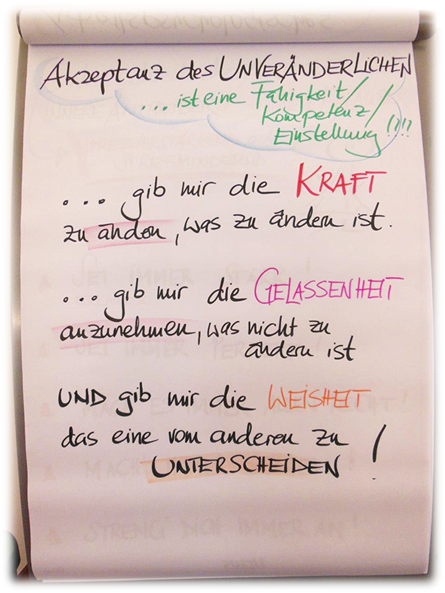 Akzeptanz des UNVERÄNDERLICHEN
... ist eine Fähigkeit/
Kompetenz/
Einstellung!?!!
... gib mir die KRAFT
zu ändern, was zu ändern ist.
... gib mir die GELASSENHEIT
anzunehmen, was nicht zu
ändern ist
UND gib mir die WEISHEIT
das eine vom anderen zu
UNTERSCHEIDEN!
SEI IMMER
SEI IMMER PER
MACH
STRENG DICH IMMER AN!